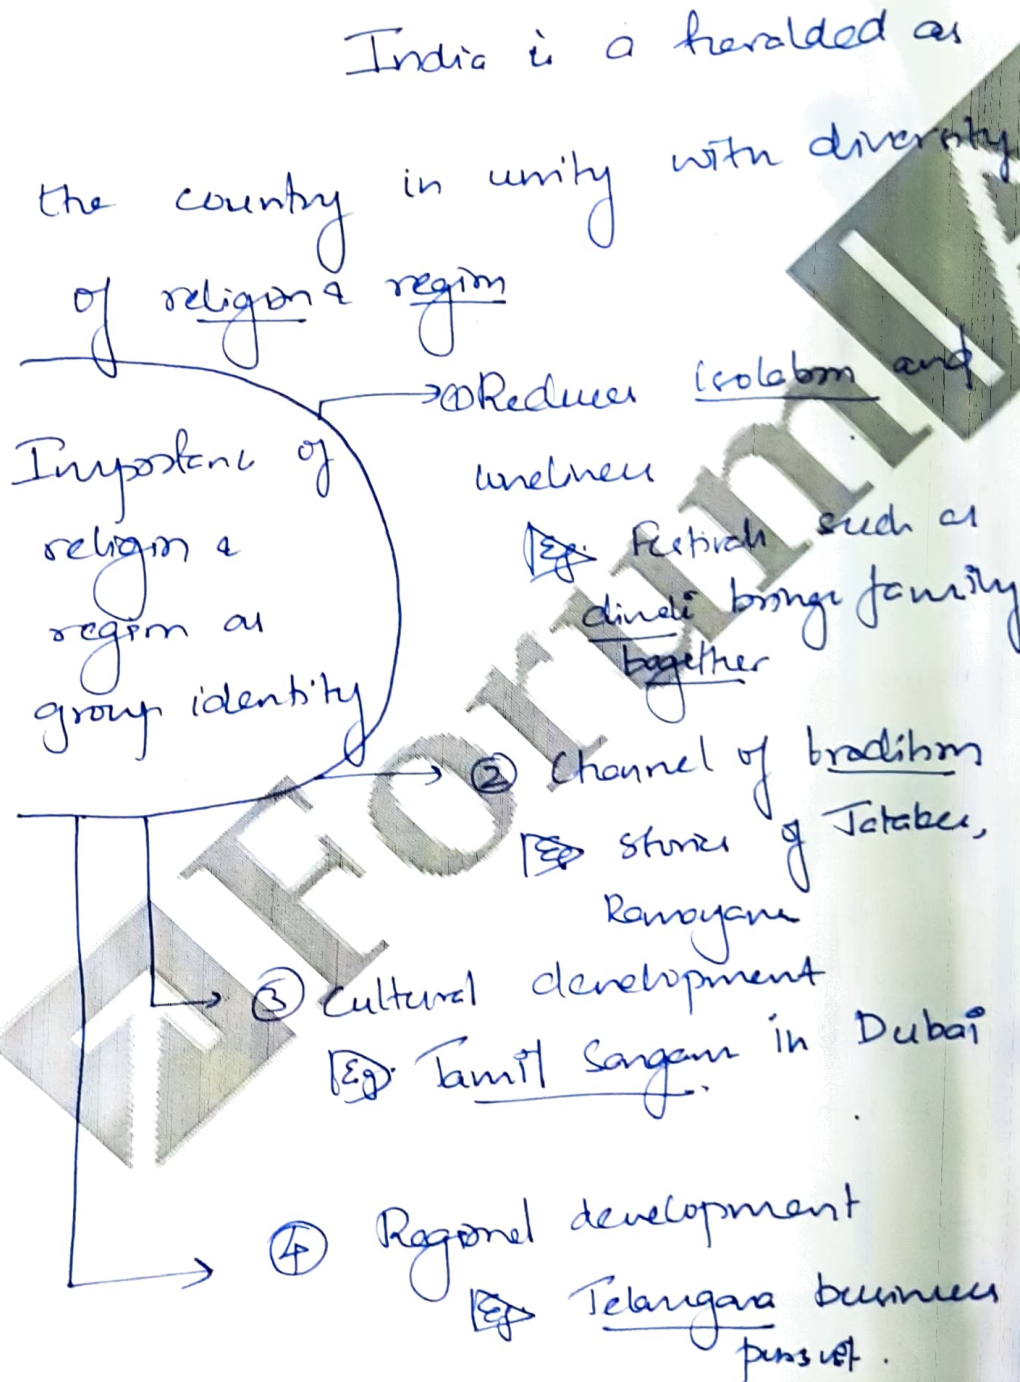 India is a heralded as
the country in unity with diversity
of religion & region
Importance of
religion &
region as
group identity
① Reduces isolation and
loneliness
Eg. Festivals such as
diwali brings family
together
② Channel of tradition
Eg Stories of Jatakas,
Ramayana
③ Cultural development
Eg. Tamil Sangam in Dubai
④ Regional development
Eg Telangana business
ForumIA